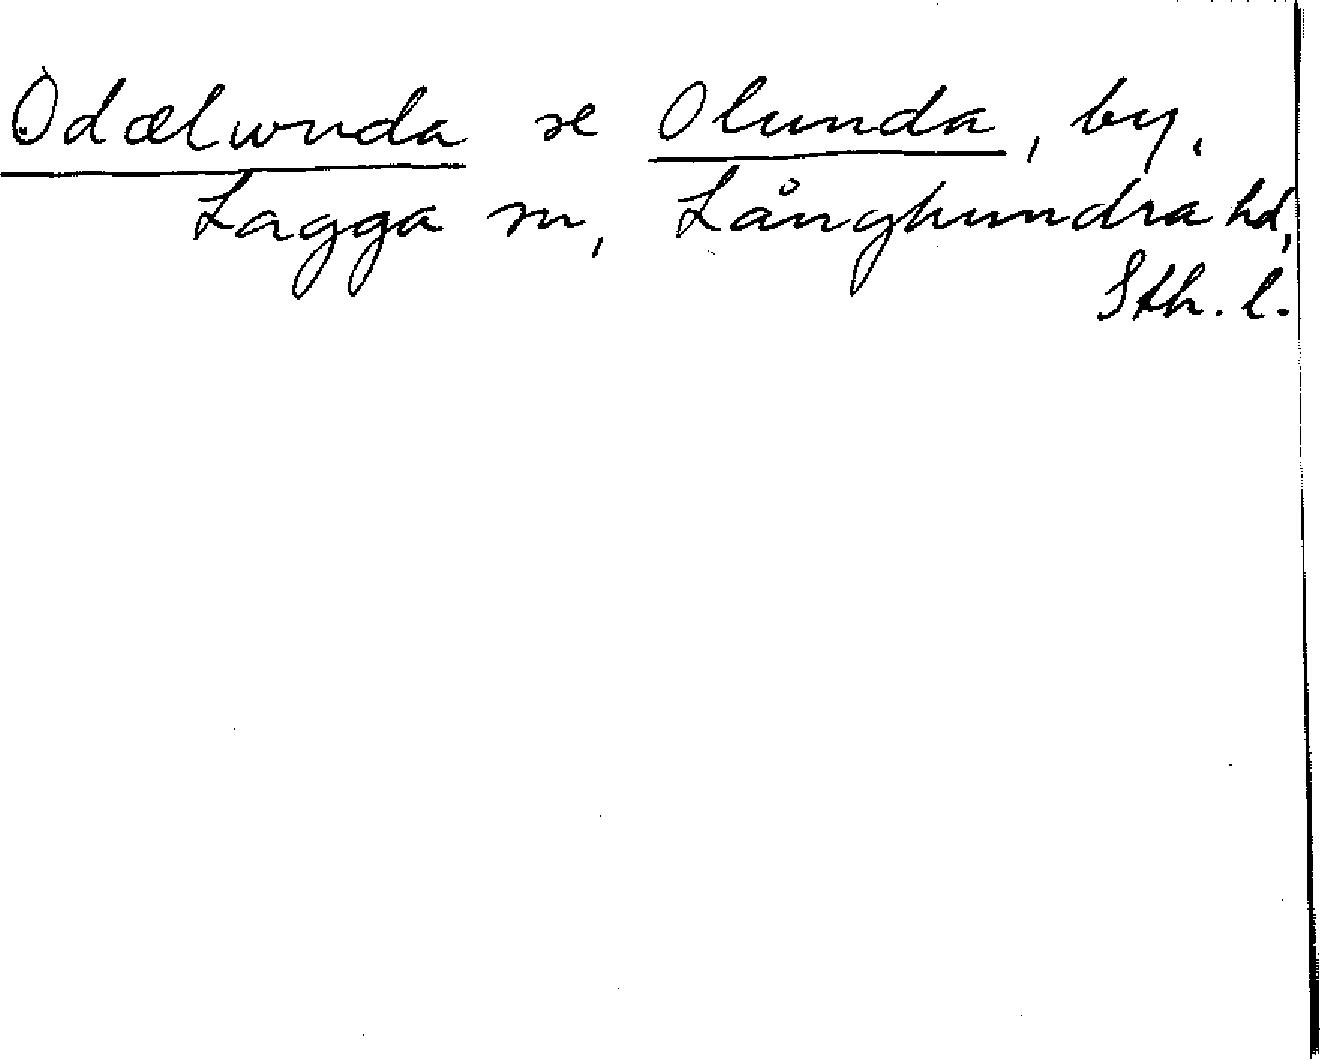 Odælwnda se Olunda, by,
Lagga sn, Långhundra hd,
Sth. l.